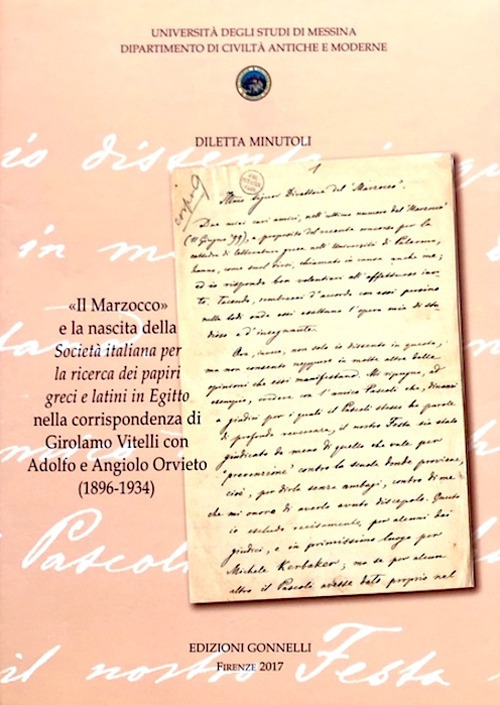 UNIVERSITÀ DEGLI STUDI DI MESSINA
DIPARTIMENTO DI CIVILTÀ ANTICHE E MODERNE
DILETTA MINUTOLI
«Il Marzocco»
e la nascita della
Società italiana per
la ricerca dei papiri
greci e latini in Egitto
nella corrispondenza di
Girolamo Vitelli con
Adolfo e Angiolo Orvieto
(1896-1934)
1
Illmo Signor Direttore del "Marzocco".
Due miei cari amici, nell'ultimo numero del Marzocco
(11 Giugno 99), a proposito del recente concorso per la
cattedra di letteratura greca nell'Università di Palermo,
hanno, come suol dirsi, chiamato in causa anche me;
ed io rispondo ben volentieri all'affettuoso invi-
to, facendo, sembrami d'accordo con essi persino
nelle lodi onde essi esaltano l'opera mia di stu-
dioso e d'insegnante.
Ora, invece, non solo io dissento in questo;
ma non consento neppure in molte altre delle
opinioni che essi manifestano. Mi ripugna, ad
esempio, credere con l'amico Pascoli che, dinanzi
a giudici per i quali il Pascoli stesso ha parole
di profonda reverenza, il nostro Festa sia stato
giudicato da meno di quello che vale per
"prevenzione" contro la scuola donde proviene,
cioè, per dirla senza ambagi, contro di me
che mi onoro di averlo avuto discepolo. Questo
io escludo recisamente, per alcuni dei
giudici, e in primissimo luogo per
Michele Kerbaker; ma se per alcun
altro il Pascoli avesse dato proprio nel
io dissento in
in
Pascoli
il nostro Festa
EDIZIONI GONNELLI
FIRENZE 2017